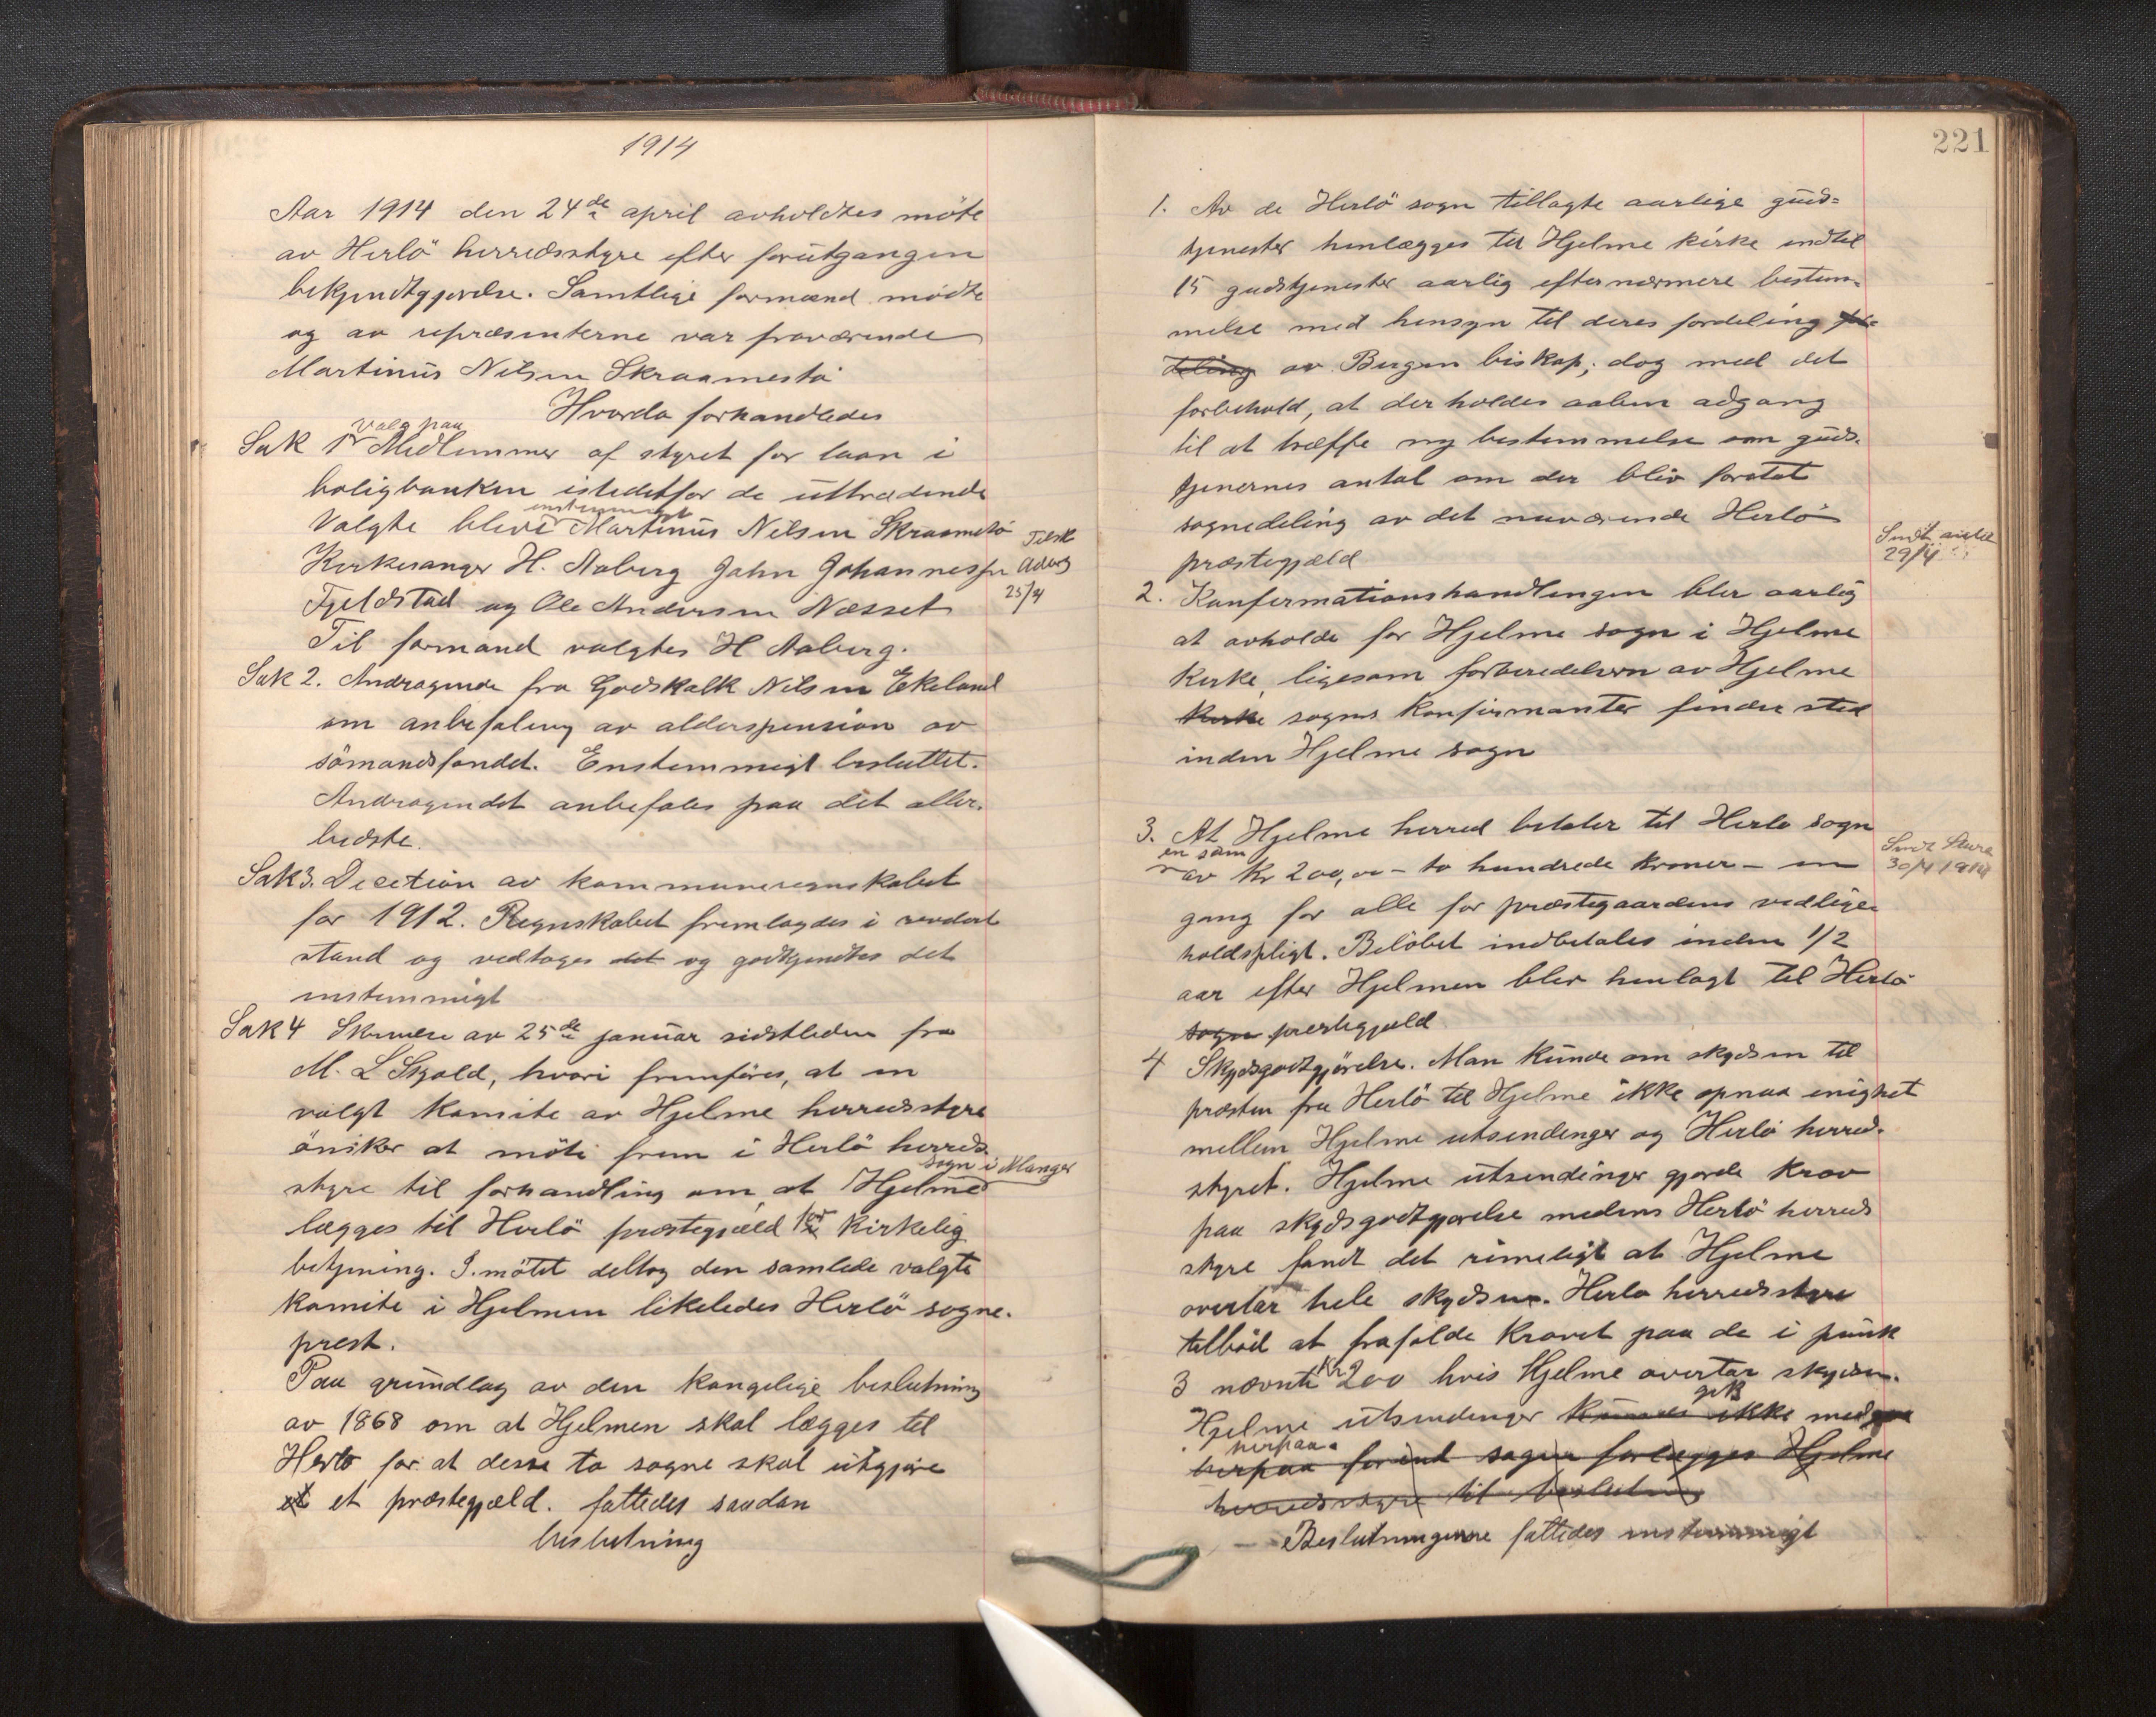 1914
Aar 1914 den 24de april avholdtes möte
av Herlö herredsstyre efter forutgangen
bekjendtgjörelse. Samtlige formænd mödte
og av repræsenterne var fraværende
Martinus Nilsen Skraamestö
Hvorda forhandledes
valg paa
Sak 1 Medlemmer af styret for laan i
boligbanken istedetfor de uttrædende
enstemmigt
Valgte bleve Martinus Nilsen Skraamestö
Kirkesanger H. Aaberg John Johannessen
Fjeldstad og Ole Andersen Næsset
Tilsk
Adv
25/4
Til formand valgtes H Aaberg.
Sak 2. Andragende fra Godskalk Nilsen Ekeland
om anbefaling av alderspension av
sömandsfondet. Enstemmigt besluttet.
Andragendet anbefales paa det aller-
bedste.
Sak 3. Decetion av kommuneregnskabet
for 1912. Regnskabet fremlagdes i revidert
stand og vedtoges det og godkjendtes det
enstemmigt
Sak 4 Skrivelse av 25de januar sidstleden fra
M. L Skjold, hvori fremföres, at en
valgt komite av Hjelme herredsstyre
önsker at möte frem i Herlö herreds
sogn i Manger
styre til forhandling om at Hjelme
lægges til Herlö prestegjæld for kirkelig
betjening. I mötet deltog den samlede valgte
komite i Hjelmen likeledes Herlö sogne-
prest.
Paa grundlag av den kongelige beslutning
av 1868 om at Hjelmen skal lægges til
Herlö for at desse to sogne skal utgjöre
et et præstegjæld. fattedes saadan
beslutning
221
1. Av de Herlö sogn tillagte aarlige guds-
tjenester henlægges til Hjelme kirke indtil
15 gudstjenester aarlig efter nærmere bestem-
melse med hensyn til deres fordeling for-
deling av Bergen biskop; dog med det
forbehold, at der holdes aaben adgang
til at træffe ny bestemmelse om guds-
tjenernes antal om der bliv foretat
sognedeling av det nuværende Herlö
præstegjæld
Sendt
29/4
2. Konfirmationshandlingen blir aarlig
at avholde for Hjelme sogn i Hjelme
Kirke, ligesom forberedelsen av Hjelme
Kirke sogns konfirmanter finder sted
inden Hjelme sogn
3. At Hjelme herred betaler til Herlo sogn
en sum
av Kr 200,00 - to hundrede kroner - en
Sendt Sture
30/4 1914
gang for alle for præstegaardens vedlige-
holdspligt. Belöbet indbetales inden 1/2
aar efter Hjelmen blev henlagt til Herlö
sogn prestegjæld
4 Skydsgodtgjörelse. Man kunde om skydsen til
præsten fra Herlö til Hjelme ikke opnaa enighet
mellem Hjelme utsendinger og Herlö herred-
styret. Hjelme utsendinger gjorde krav
paa skydsgodtgjörelse medens Herlö herreds
styre fandt det rimeligt at Hjelme
overtar hele skydsen. Herlo herredsstyre
tilböd at frafalde kravet paa de i punk
3 nævnte Kr 200 hvis Hjelme overtar skydsen.
gik
Hjelme utsendinger kunde ikke med paa
herpaa.
herpaa forind sagen forlægges Hjelme
herredsstyre til beslutning
Beslutningerne fattedes enstemmigt